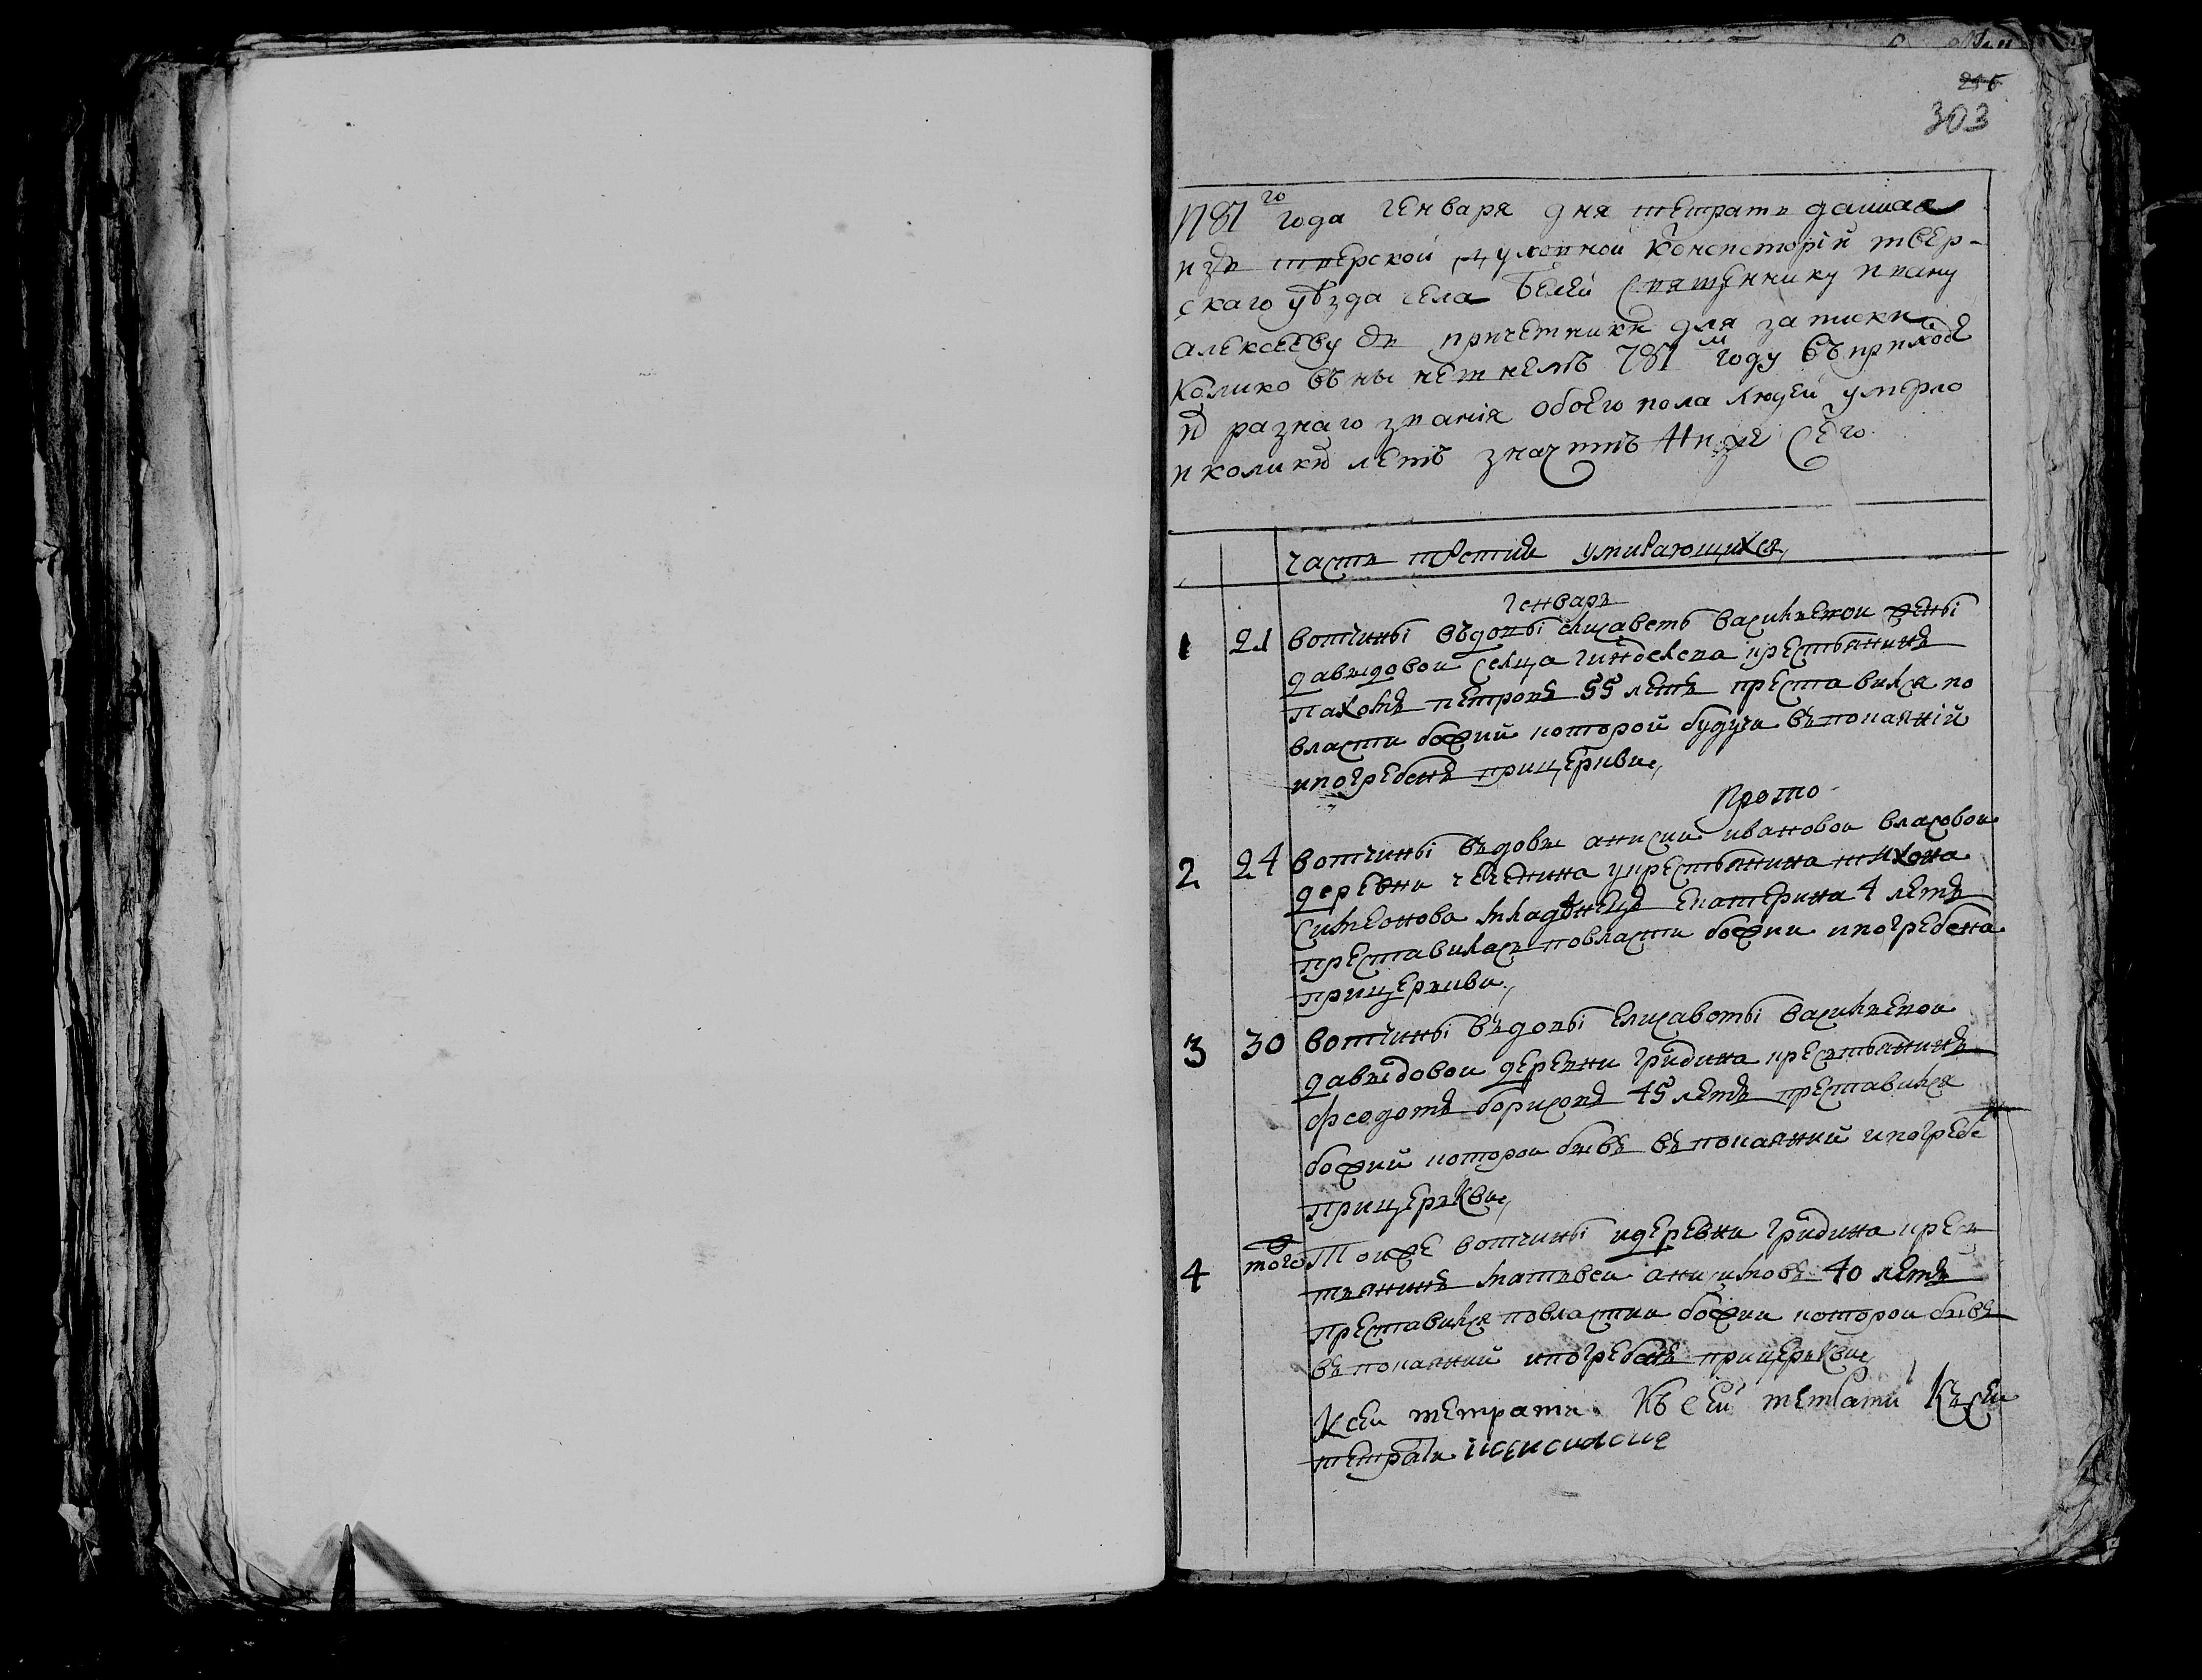 303
1781го года Генваря дня тетрать данная
изъ тверской духовной Консисторіи твер-
скаго уѣзда села Белеи Священнику ивану
алексееву съ причетники для записки
Колико въ нынешнемъ 781м году въ приходе
разнаго званія обоего пола людей умерло
и коликихъ летъ значитъ Ниже Сего
часть третия умирающихся
Генварь
1 21 вотчины вьдовы елисаветь васильевои жены
давыдовои селца крестьянинъ
пахомъ петровъ 55 летъ преставился по
власти божий которой будучи въ покаянiй
и погребенъ при церкви
2 24 вотчины вьдовы анисии ивановои власовои
деревни чеченина у крестьянина тихона
симеонова младѣнецъ екатерина 4 летъ
преставилась по власти божии и погребена
при церькви
3 30 вотчины вьдовы елисаветы васильевои
давыдовои деревни гридина кресьтьянинъ
феодотъ борисовъ 45 летъ преставился
божии которои бывъ въ покаянии и погребе
при церькви
4 того Тоиже вотчины и деревни гридина кресь
тьянинъ матьвеи анисимовъ 40 летъ
преставился по власти божии которои бывъ
въ покаянии и погребенъ при церькви
К сеи тетрати Къ сеи тетрати Къ сеи
тетрати